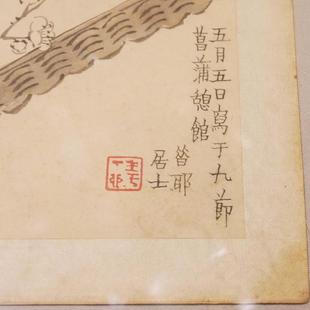 五月五日寫于九節
菖蒲憩館
昔耶
居士